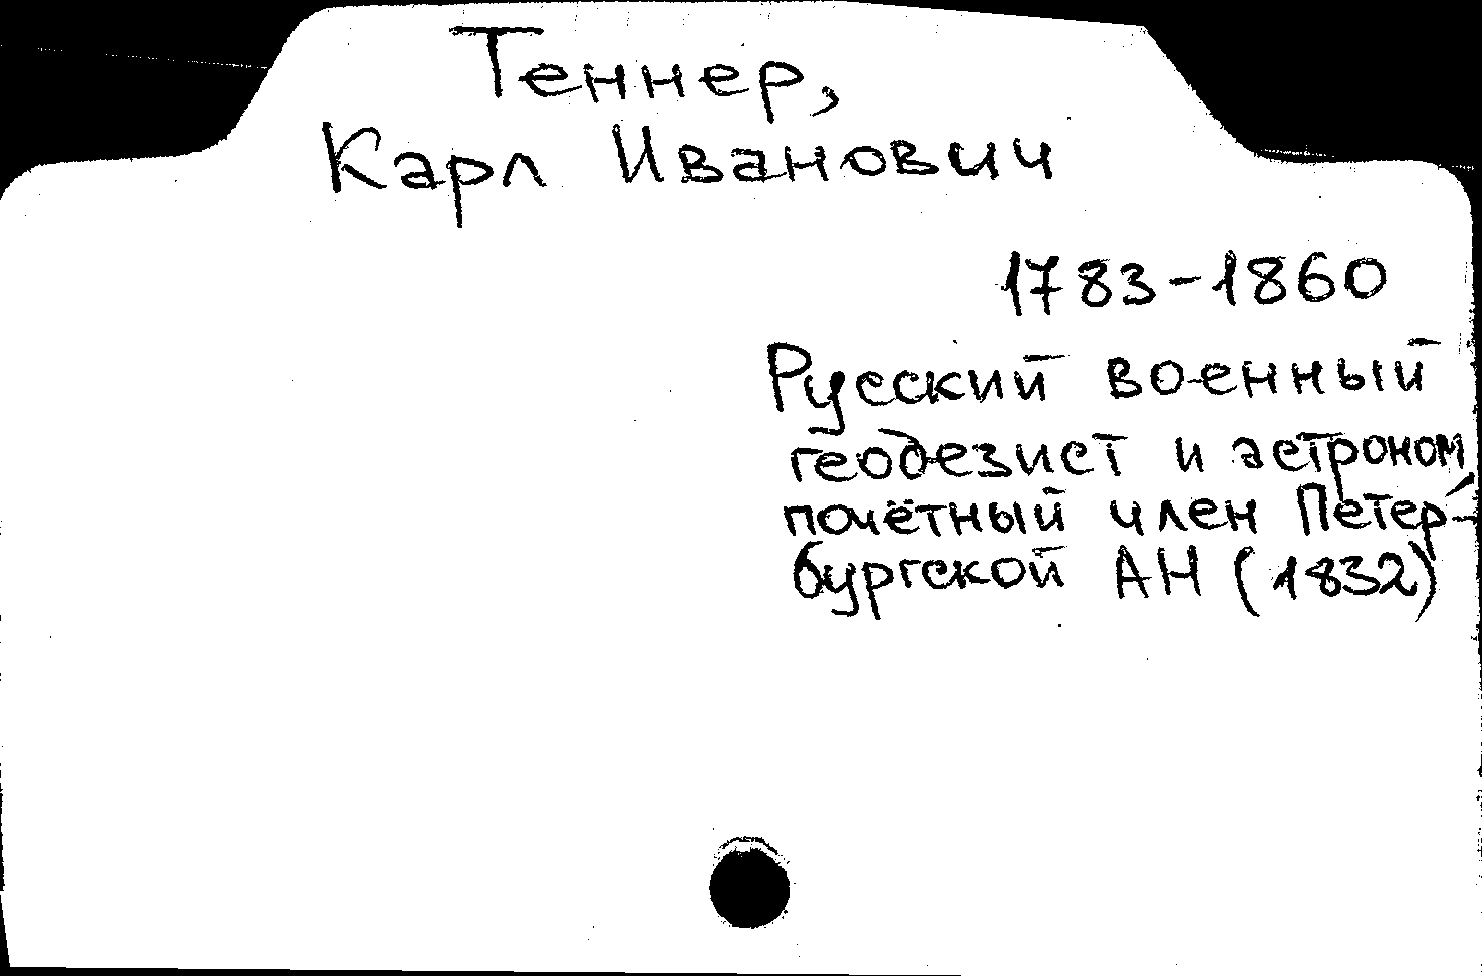 Теннер,
Карл Иванович
1783-1860
Русский военный
геодезист и астроном,
почётный член Петер-
бургской АН (1832)